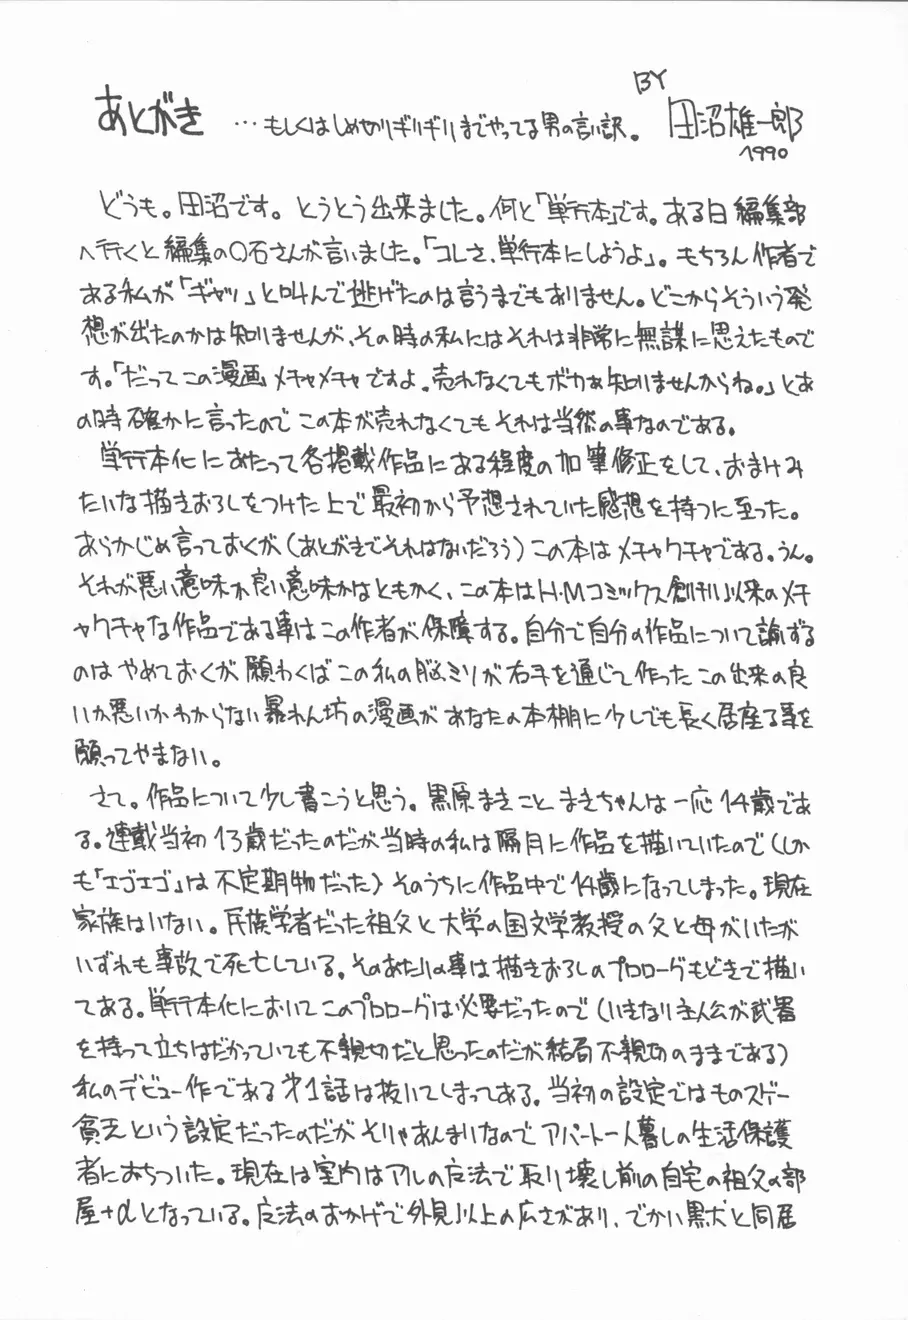 あとがき …もしくはしめ切りギリギリまでやってる男の言い訳。 BY 田沼雄一郎 1990
どうも。田沼です。とうとう出来ました。何と「単行本」です。ある日編集部
へ行くと編集の〇石さんが言いました。「コレさ、単行本にしようよ」。もちろん作者で
ある私が「ギャッ!」と叫んで逃げたのは言うまでもありません。どこからそういう発
想が出たのかは知りませんが、その時の私にはそれは非常に無謀に思えたもので
す。「だってこの漫画メチャメチャですよ。売れなくてもボカぁ知りませんからね。」とあ
の時確かに言ったのでこの本が売れなくてもそれは当然の事なのである。
単行本化にあたって各掲載作品にある程度の加筆修正をして、おまけみ
たいな描きおろしをつけた上で最初から予想されていた感想を持つに至った。
あらかじめ言っておくが(あとがきでそれはないだろう)この本はメチャクチャである。うん。
それが悪い意味か良い意味かはともかく、この本はH・Mコミックス創刊以来のメチ
ャクチャな作品である事はこの作者が保障する。自分で自分の作品について論ずる
のはやめておくが願わくばこの私の脳ミソが右手を通じて作ったこの出来の良
いか悪いかわからない暴れん坊の漫画があなたの本棚に少しでも長く居座る事を
願ってやまない。
さて。作品について少し書こうと思う。黒原まきことまきちゃんは一応14歳であ
る。連載当初13歳だったのだが当時の私は隔月に作品を描いていたので(しか
も「エゴエゴ」は不定期物だった)そのうちに作品中で14歳になってしまった。現在
家族はいない。民族学者だった祖父と大学の国文学教授の父と母がいたが
いずれも事故で死亡している。そのあたりの事は描きおろしのプロローグもどきで描い
てある。単行本化においてこのプロローグは必要だったので(いきなり主人公が武器
を持って立ちはだかっていても不親切だと思ったのだが結局不親切のままである)
私のデビュー作である才1話は抜いてしまってある。当初の設定ではものスゲー
貧乏という設定だったのだがそりゃあんまりなのでアパート一人暮しの生活保護
者におちついた。現在は室内はアルの魔法で取り壊し前の自宅の祖父の部
屋+αとなっている。魔法のおかげで外見以上の広さがあり、でかい黒犬と同居